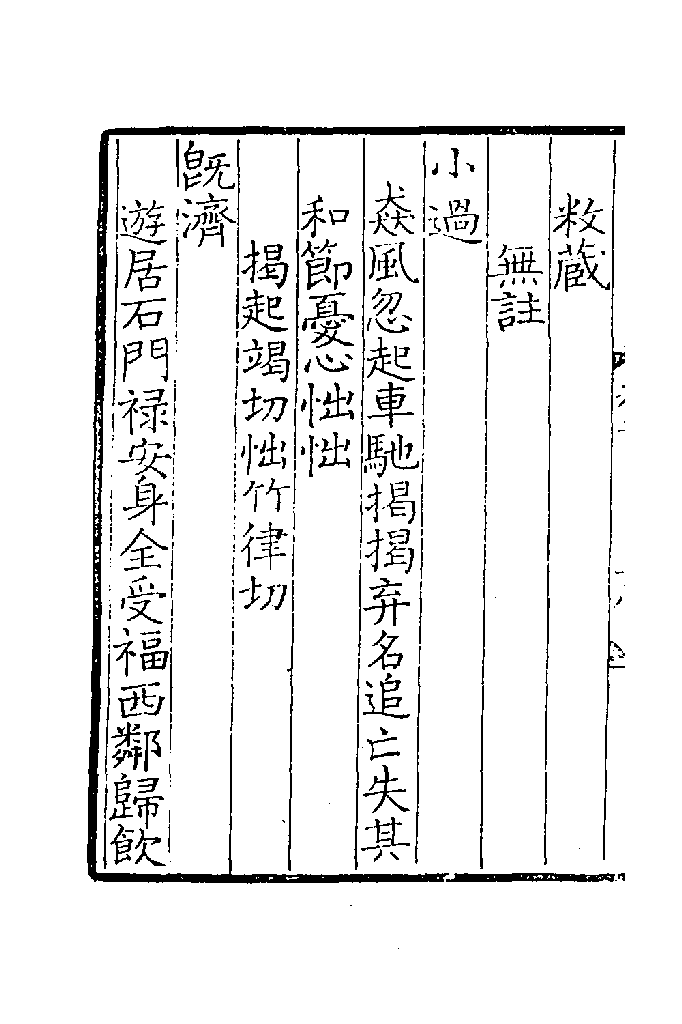 敉蔵
無註
小過
猋風忽起車馳揭揭弃名追亡失其
和節憂心怞怞
揭起竭切怞竹律切
旣濟
遊居石門禄安身全受福西鄰歸飲